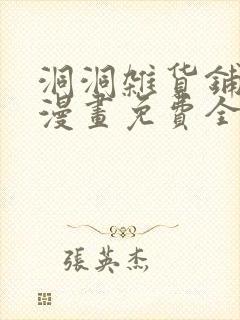 洞洞雜貨鋪
漫畫免費全
張英杰